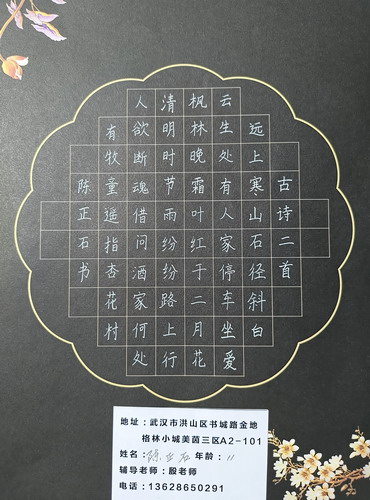 古诗二首
远上寒山石径斜白
云生处有人家停车坐爱
枫林晚霜叶红于二月花
清明时节雨纷纷路上行
人欲断魂借问酒家何处
有牧童遥指杏花村
陈正石书
地址：武汉市洪山区书城路金地
格林小城美茵三区A2-101
姓名：陈正石 年龄：11
辅导老师：殷老师
电话：13628650291